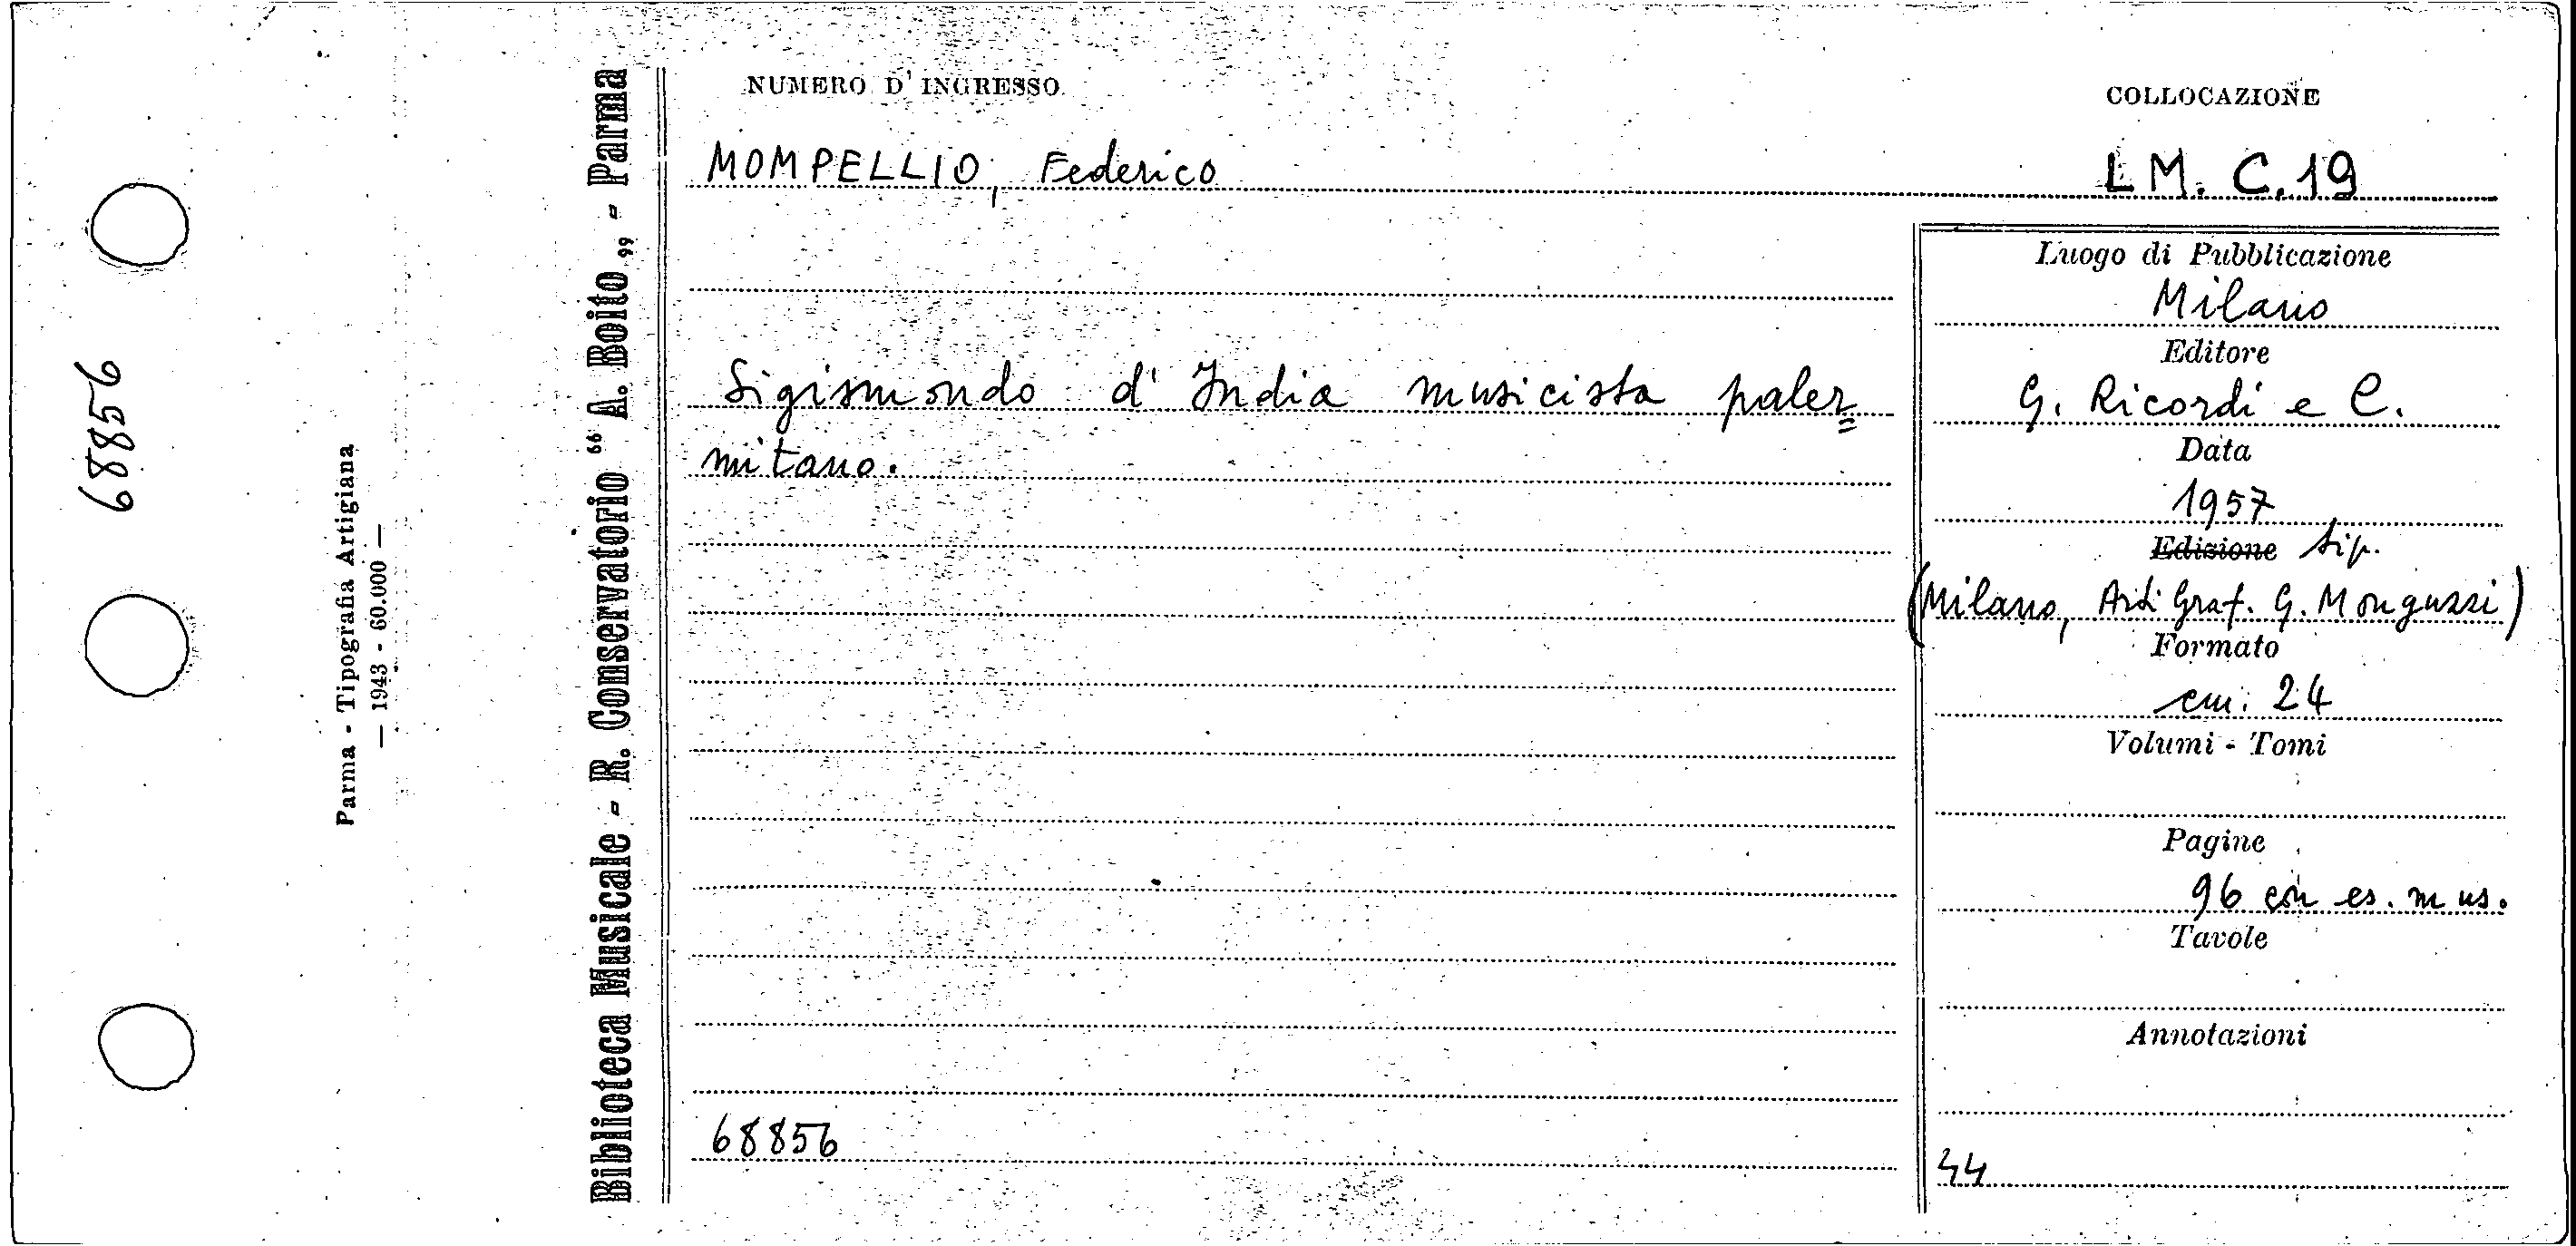 68856
Parma - Tipografia Artigiana
— 1943 - 60.000 —
Biblioteca Musicale - R. Conservatorio “ A. Boito „ - Parma
NUMERO D' INGRESSO
COLLOCAZIONE
MOMPELLIO, Federico
LM. C.19
Sigismondo d' India musicista paler=
mitano.
68856
Luogo di Pubblicazione
Milano
Editore
G. Ricordi e C.
Data
1957
Edizione tip.
(Milano, Arti Graf. G. Monguzzi)
Formato
cm. 24
Volumi - Tomi
Pagine
96 con es. mus.
Tavole
Annotazioni
44